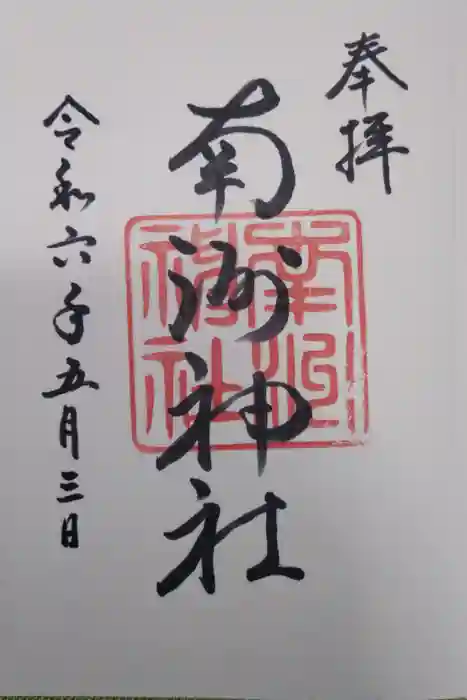 奉拝
南洲神社
南洲
神社
令和六年五月三日